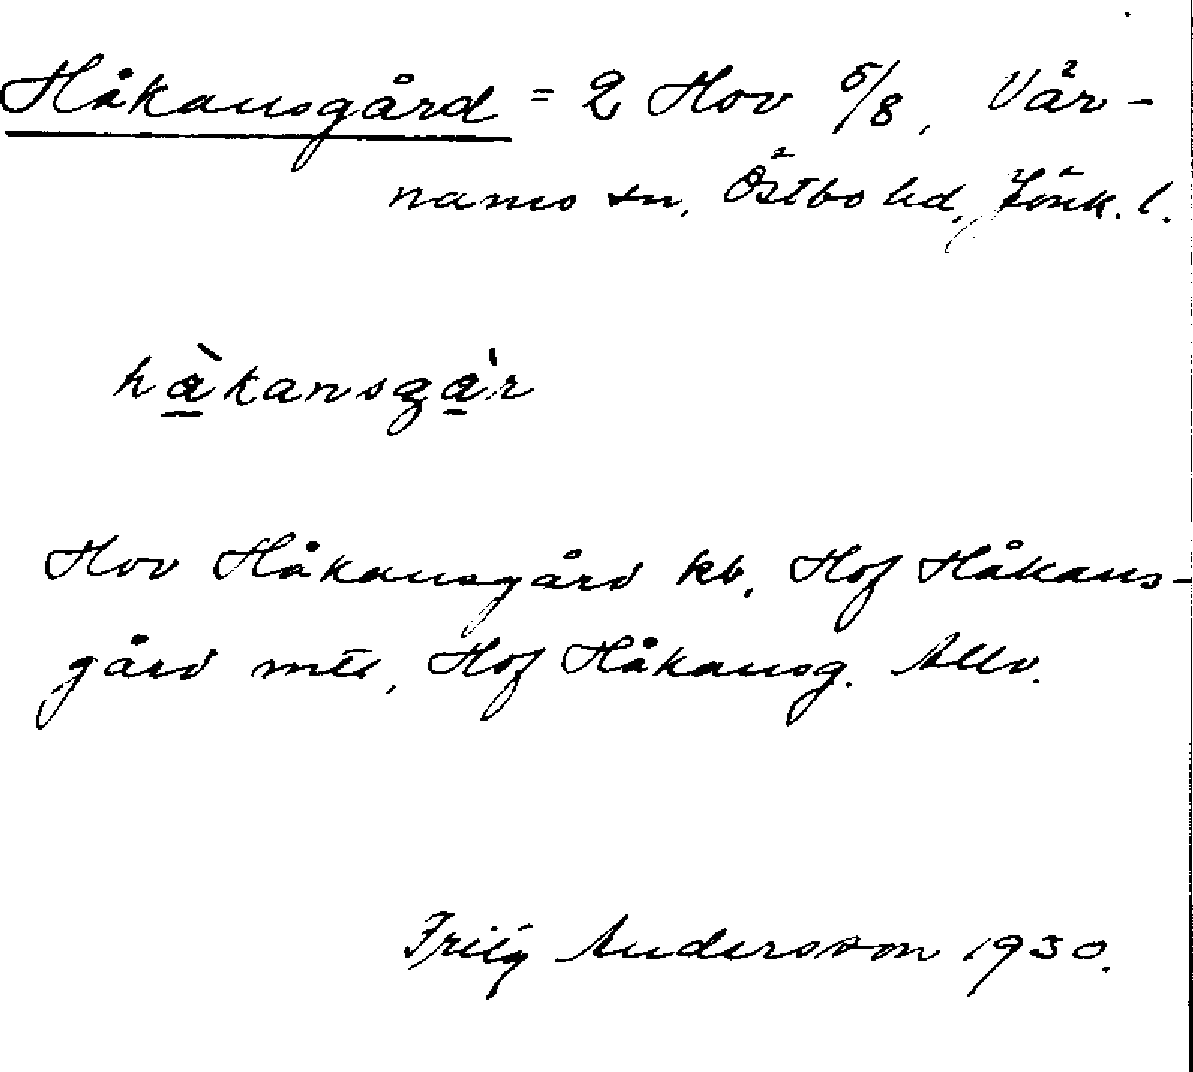 Håkansgård = 2 Hov 5/8, Vär-
namo sn, Östbo hd, Jönk. l.
hàkansgár
Hov Håkansgård kb, Hof Håkans-
gård mtl, Hof Håkansg. Allm.
Andersson 1930.